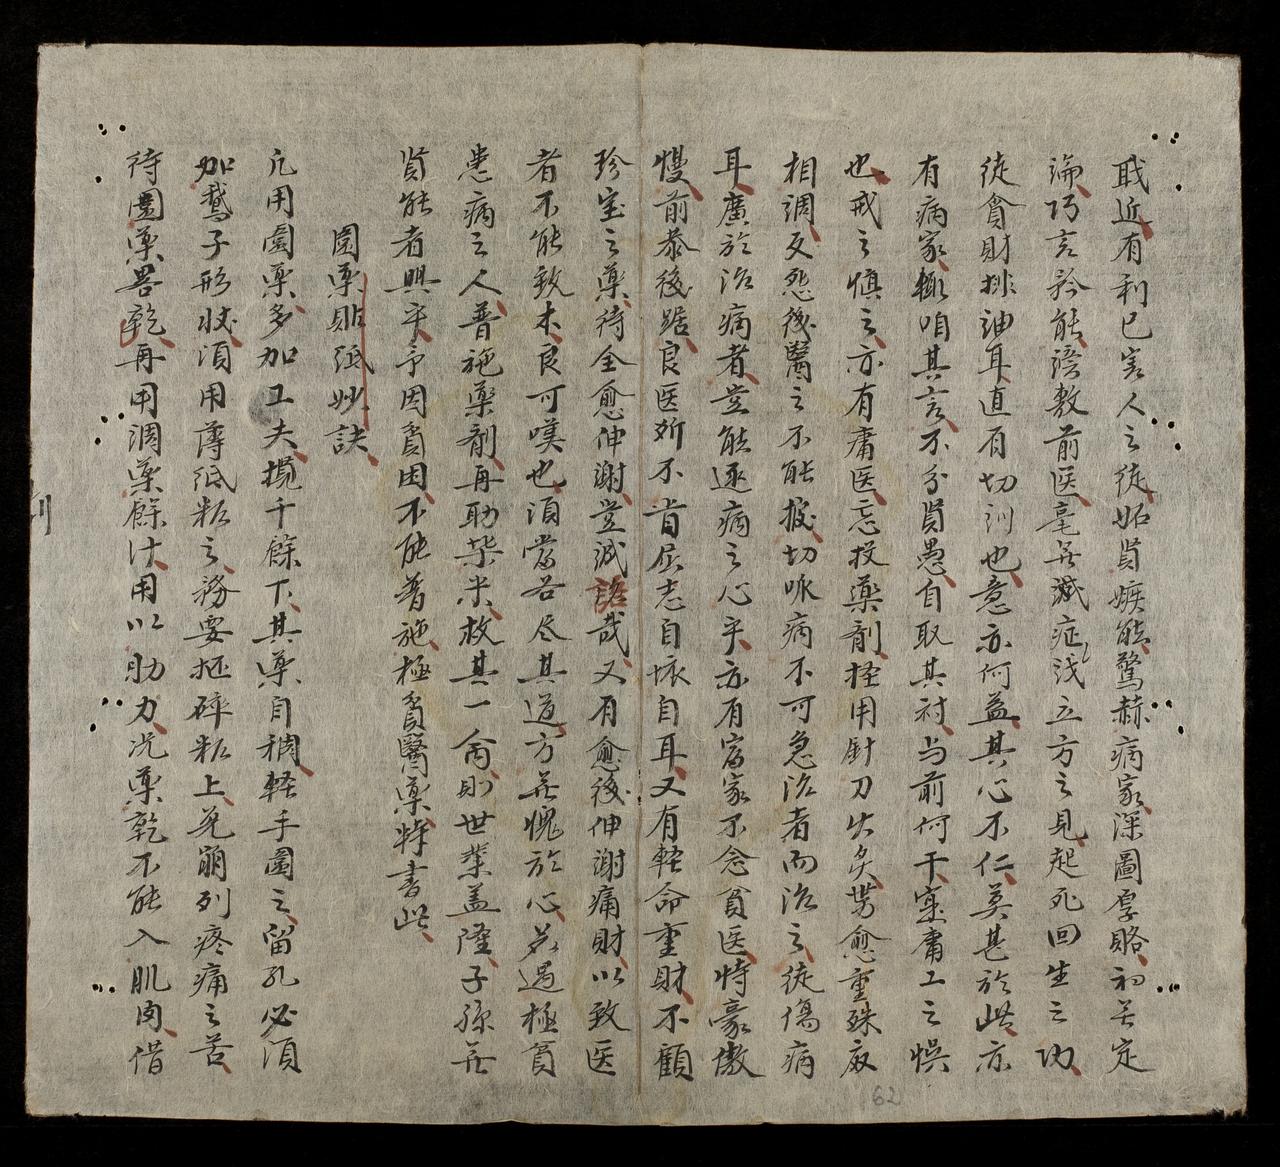 戢近有利已害人之徒妬賢嫉能驚赫病家深圖厚賂初無定
論巧言矜能謗敷前医毫無減症浅立方之見起死回生之功
徒貪財排訕耳直有切訓也意亦何益其心不仁莫甚於此亦
有病家輙咱其言不分賢愚自取其討与前何干寔庸工之悞
也戒之慎之亦有庸医忘投藥剤桎用針刀火灸勞愈重殊成
相調反怨後醫之不能掇切呎病不可急治者而治之徒傷病
耳廣於治病者豈能逐病之心乎亦有富家不念貧医恃豪傲
慢前恭後踞良医所不肯屈志自恢自耳又有輕命重財不顧
珍宝之藥待全愈伸謝豈減諮哉又有愈後伸謝痛財以致医
者不能致木良可嘆也須當各尽其道方無愧於心若遇極貧
患病之人普施藥剤再助柴米救其一命則世業益隆子孫無
賢能者興乎予因貧困不能普施極貧醫藥特書此
圍藥貼紙妙訣
凢用圍藥多加工夫攪千餘下其藥自稠輕手圍之留孔必須
加鵝子形狀須用薄紙粘之務要極碎粘上免崩列疼痛之苦
待圍藥畧乾再用潤藥餘汁用以助力况藥乾不能入肌肉借
62